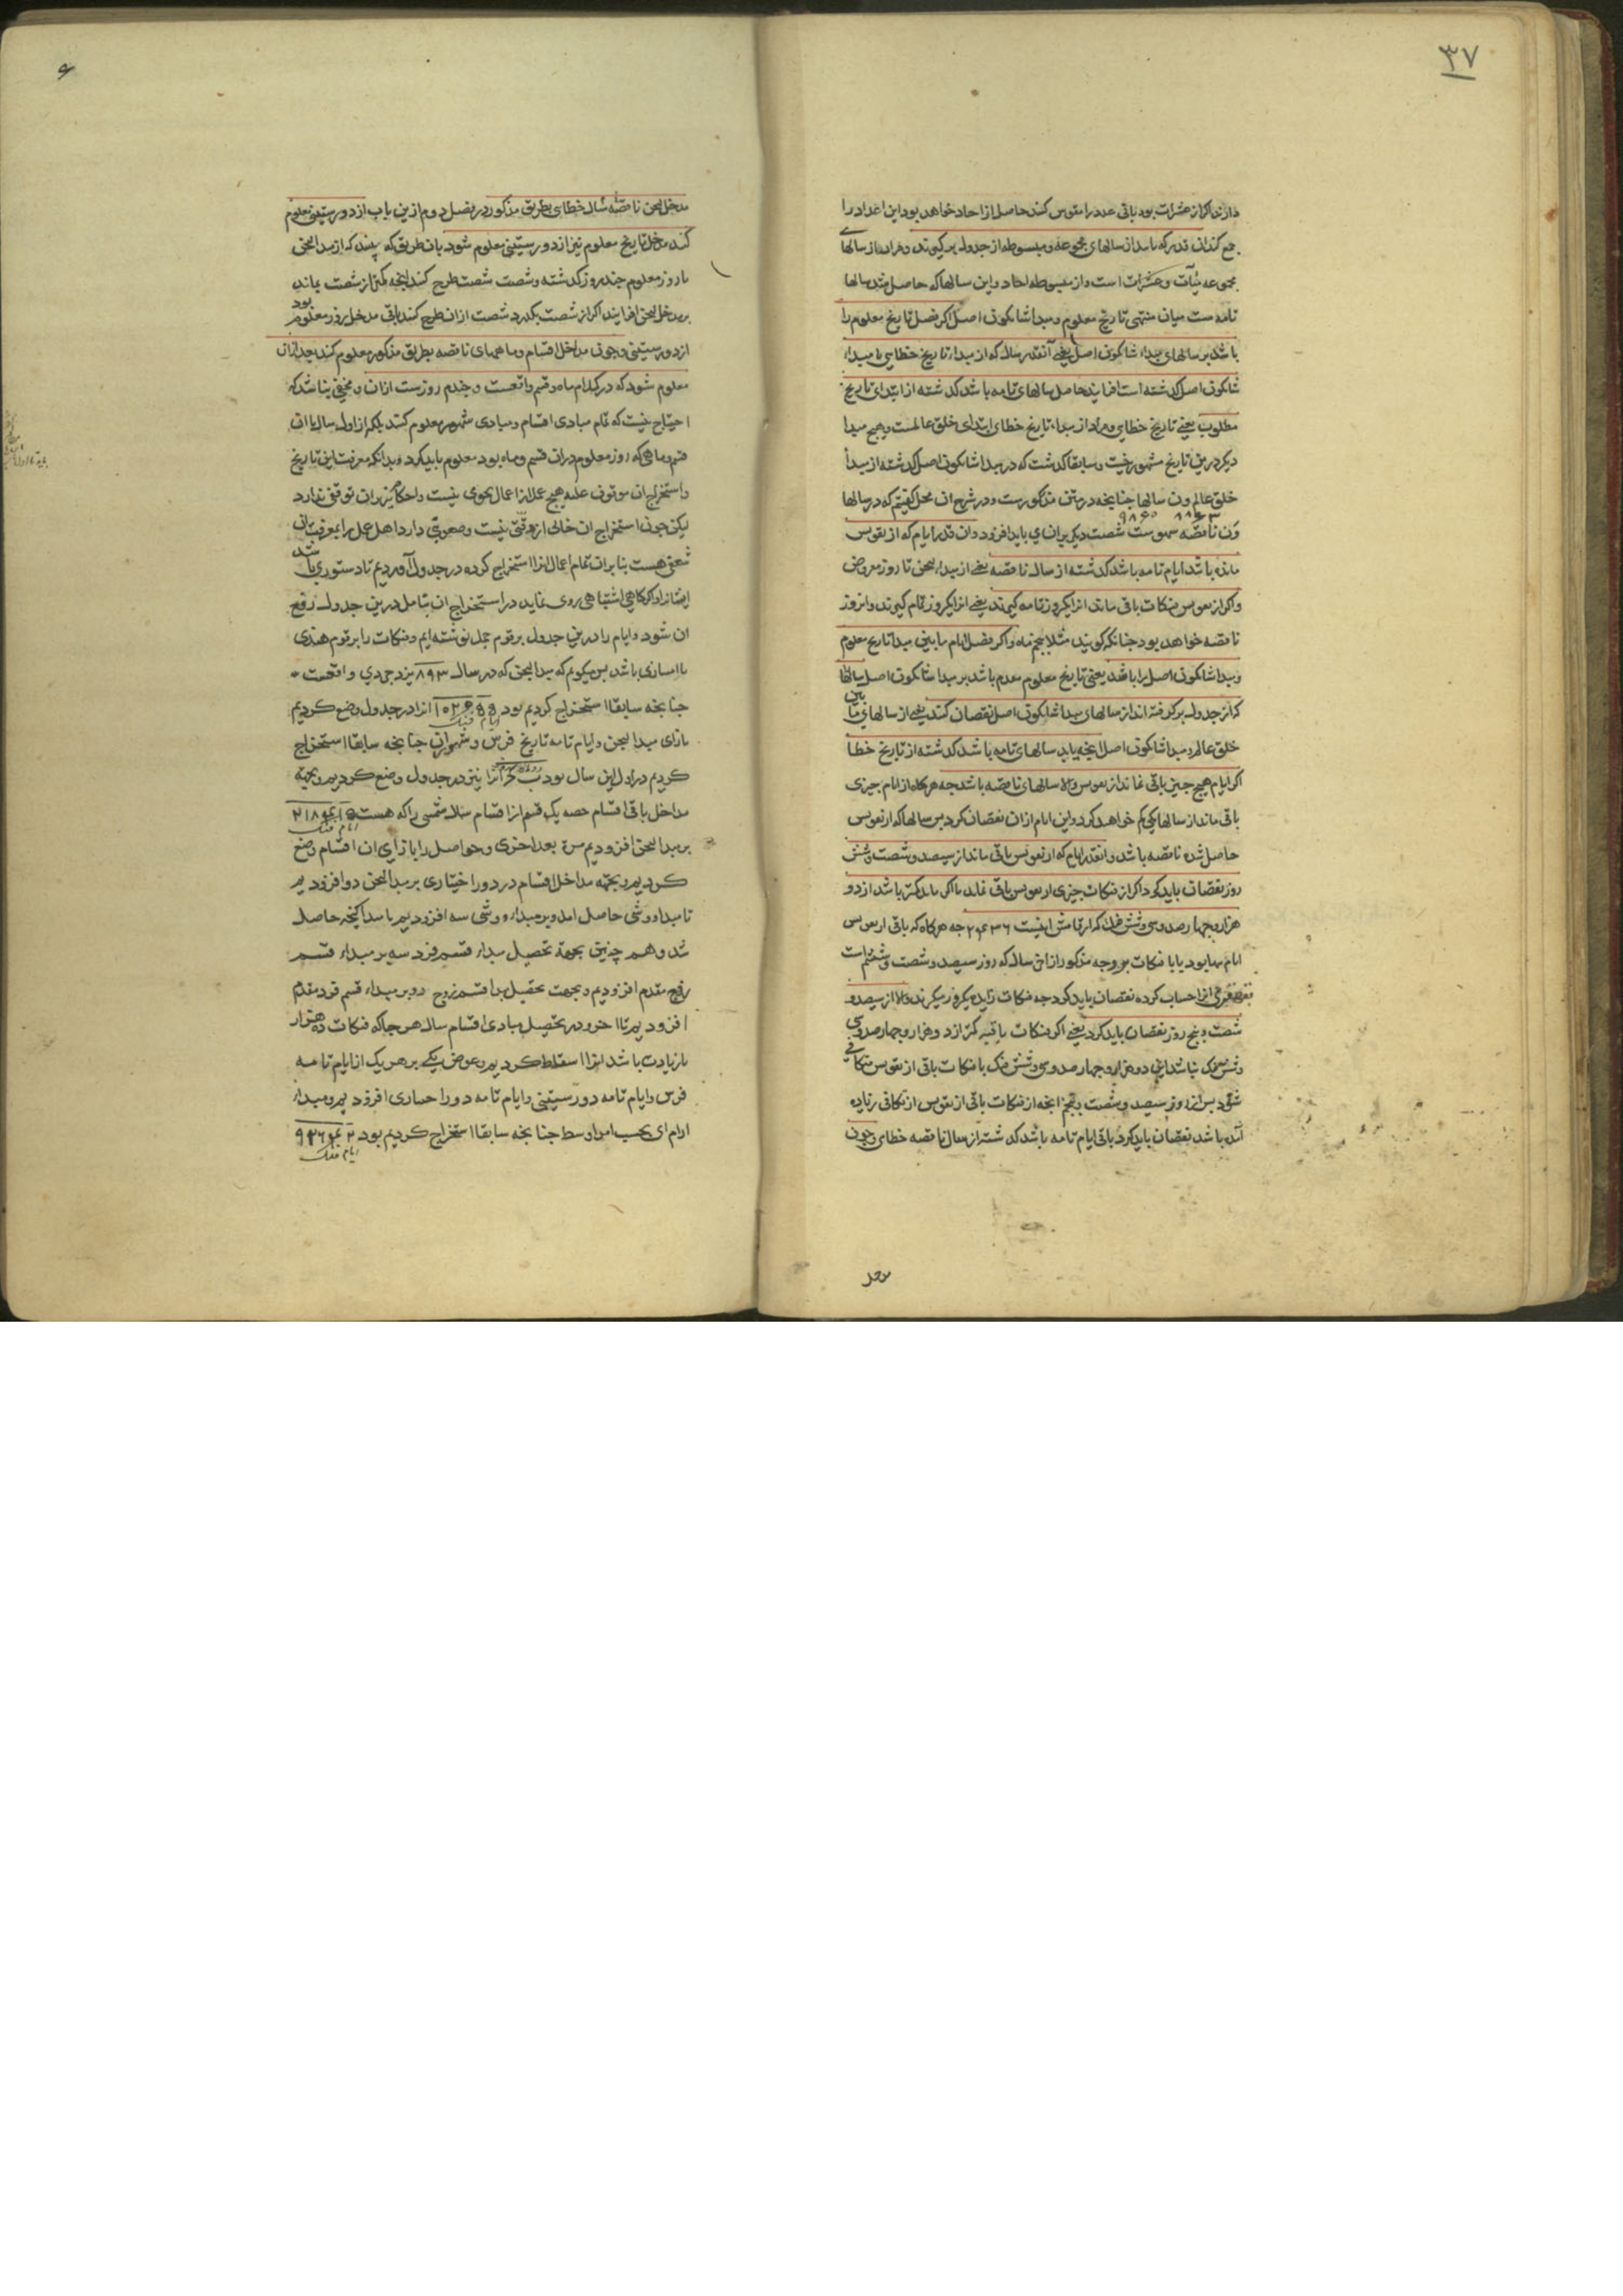 ۳۷
دارند اگر از عشرات بود باقی عدد را مقوس کنند حاصل از احاد خواهد بود این اعداد را
جمع کنند آن قدر که باید از سالهای مجموعه و مبسوطه از جدول برگیرند و مراد از سالهای
مجموعه مئات و عشرات است و از مبسوطه احاد و این سالها که حاصل شد سالها
تامه ست میان منتهی تاریخ معلوم و مبدا شانکون اصل اگر فضل تاریخ معلوم را
باشد بر سالهای مبدا شانکون اصل یعنی آنقدر سال که از مبدا تاریخ خطایی تا مبدا
شانکون اصل گذشته است افزایند حاصل سالهای تامه باشد گذشته از ابتدای تاریخ
مطلوب یعنی تاریخ خطایی و مراد از مبدا تاریخ خطای ابتدای خلق عالمست و هیچ مبدا
دیگر درین تاریخ مشهور نیست و سابقا گذشت که در مبدا شانکون اصل گذشته از مبدأ
خلق عالم ون سالها چنانچه در متن مذکورست و در شرح آن محل گفتیم که در سالها
۸۸۶۳ ۹۸۶۰
ون ناقصه سهوست شصت دیگر بران می باید افزود و آن قدر ایام که از تقویس
مانده باشد ایام تامه باشد گذشته از سال ناقصه یعنی از مبدا یجن تا روز مفروض
و اگر از تقویس فنکات باقی ماند آنرا یکروز تامه گیرند یعنی آنرا یکروز تمام گیرند و آنروز
ناقصه خواهد بود چنانکه گویند مثلا پنجم ماه و اگر فضل ایام مابین مبدا تاریخ معلوم
و مبدا شانکون اصل را باشد یعنی تاریخ معلوم مقدم باشد بر مبدا شانکون اصل سالها
که از جدول برگرفته اند از سالهای مبدا شانکون اصل نقصان کنند یعنی از سالهای مابین
خلق عالم و مبدا شانکون اصل آنچه باید سالهای تامه باشد گذشته از تاریخ خطا
اگر ایام هیچ چیز باقی نماند از تقویس والا سالهای ناقصه باشد چه هرگاه از ایام چیزی
باقی ماند از سالها یکی کم خواهد کرد و این ایام از آن نقصان کرد پس سالها که از تقویس
حاصل شده ناقصه باشد و آنقدر ایام که از تقویس باقی ماند از سیصد و شصت و شش
روز نقصان باید کرد اگر از فنکات چیزی از تقویس باقی نماند یا اگر ماند کمتر باشد از دو
هزار و چهار صد و سی و شش فنک که ارقامش اینست ۲۴۳۶ چه هرگاه که باقی از تقویس
ایام تنها بود یا با فنکات بر وجه مذکور از این سال که روز سیصد و شصت و ششم است
آنرا حساب کرده نقصان باید کرد چه فنکات زایده یکروز میگیرند و الا از سیصد و
شصت و پنج روز نقصان باید کرد یعنی اگر فنکات باقیه کمتر از دو هزار و چهار صد و سی
و شش فنک نباشد این دو هزار و چهار صد و سی و شش فنک با فنکات باقی از تقویس متکافی
شود پس از روز سیصد و شصت و پنجم آنچه از فنکات باقی از تقویس از تکافی زیاده
آید باشد نقصان باید کرد باقی ایام تامه باشد گذشته از سال ناقصه خطای و چون
مدخل یجن ناقصه سال خطای بطریق مذکور در فصل دوم ازین باب از دور ستینی معلوم
کنند مدخل تاریخ معلوم نیز از دور ستینی معلوم شود بان طریق که بینند که از مبدا یجن
تا روز معلوم چند روز گذشته و شصت شصت طرح کنند آنچه کمتر از شصت بماند
بر مدخل یجن افزایند اگر از شصت بگذرد شصت از آن طرح کنند باقی مدخل روز معلوم بود
از دور ستینی و چون مداخل اقسام و ماههای ناقصه بطریق مذکور معلوم کنند بعد از آن
معلوم شود که در کدام ماه و قسم واقعست و چندم روزست از آن و مخفی نباشد که
احتیاج نیست که تمام مبادی اقسام و مبادی شهور معلوم کنند بلکه از اول سال تا آن
قسم و ماهی که روز معلوم در آن قسم و ماه بود معلوم باید کرد و بدانکه معرفت این تاریخ
و استخراج آن موقوف علیه هیچ عمل از اعمال نجومی نیست و احکام نیز بران توقف ندارد
لیکن چون استخراج آن خالی از وقتی نیست و صعوبتی دارد اهل عمل را بمعرفت آن
شعفی هست بنابران تمام اعمال آنرا استخراج کرده در جدول آوردیم تا دستوری باشد
ایضا از او اگر گاهی اشتباهی روی نماید در استخراج آن بتامل درین جدول رفع
آن شود و ایام را درین جدول برقوم جمل نوشته ایم و فنکات را برقوم هندی
تا امتیازی باشد پس میگویم که مبدا یجن که در سال ۸۹۳ یزدجردی واقعست
چنانچه سابقا استخراج کردیم بود آنرا در جدول وضع کردیم
ایام فنک
بازای مبدا یجن و ایام تامه تاریخ فرس و شهور آن چنانچه سابقا استخراج
کردیم در اول این سال بود آنرا نیز در جدول وضع کردیم و بجهة
مداخل باقی اقسام حصه یک قسم از اقسام سال شمسی را که هست ۲۱۸۴
ایام فنک
بر مبدا یجن افزودیم مرة بعد اخری و حواصل را بازای آن اقسام وضع
کردیم و بجهة مداخل اقسام در دور اختیاری بر مبدا یجن دو افزودیم
تا مبدا ووشی حاصل آمد و بر مبدا ووشی سه افزودیم تا مبدا کنجه حاصل
شد و همچنین بجهة تحصیل مبداء قسم فرد سه بر مبداء قسم
زوج مقدم افزودیم و بجهت تحصیل مبدا قسم زوج دو بر مبداء قسم فرد مقدم
افزودیم تا آخر و در تحصیل مبادی اقسام سال هر جا که فنکات ده هزار
یا زیادت باشد آنرا اسقاط کردیم و عوض یکی بر هر یک از ایام تامه
فرس و ایام تامه دور ستینی و ایام تامه دور اختیاری افزودیم و مبداء
ارام ای بحسب امر اوسط چنانچه سابقا استخراج کردیم بود
ایام فنک